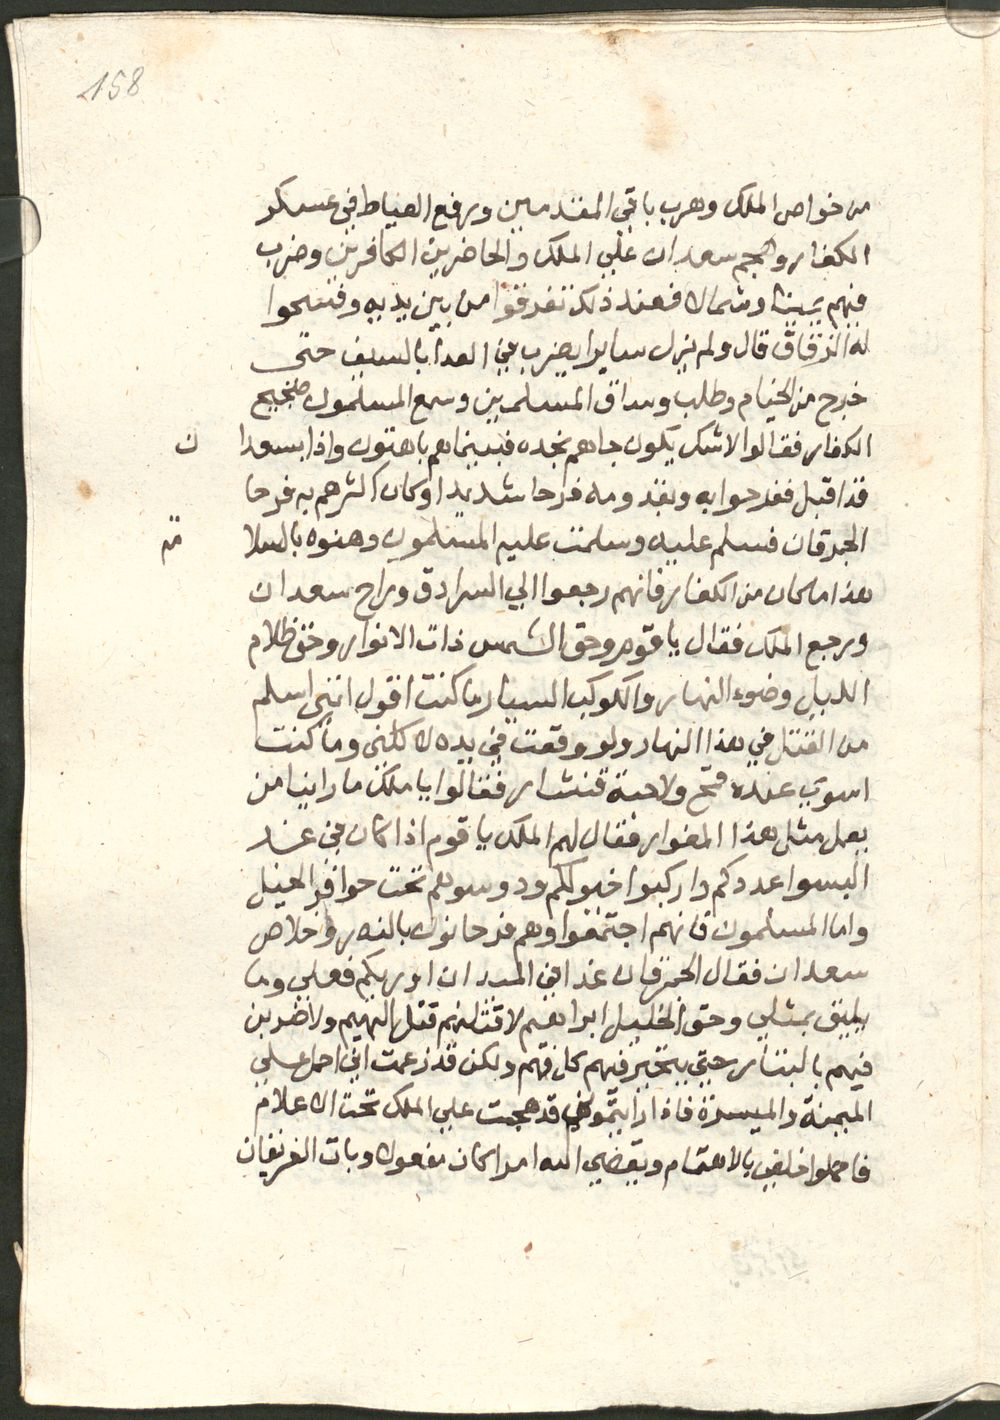 158
من خواص الملك وهرب باقي المقدمين ورفع العياط في عسكر
الكفار وهجم سعدان علي الملك والحاضرين الكافرين وضرب
فيهم يمينا وشمالا فعند ذلك تفرقوا من بين يديه وفتحوا
له الزقاق قال ولم يزل سايرا يضرب في العدا بالسيف حتى
خرج من الخيام وطلب وساق المسلمين وسمع المسلمون ضجيج
الكفار فقالوا لاشك يكون جاهم نجده فبينماهم باهتون واذا بسعدا ن
قد اقبل ففرحوا به وبقدومه فرحا شديدا وكان اكثرهم به فرحا
الجمرقان فسلم عليه وسلمت عليه المسلمون وهنوه بالسلا مة
هذا ماكان من الكفار فانهم رجعوا الي السرادق وراح سعدان
ورجع الملك فقال يا قوم وحق الشمس ذات الانوار وحق ظلام
الليل وضوء النهار والكوكب السيار ماكنت اقول انني اسلم
من القتل في هذا النهار ولو وقعت في يده لاكلني وماكنت
اسوي عنده قمح ولاحبة فقالوا يا ملك ما راينا من
يعمل مثل هذا المغوار فقال لهم الملك يا قوم اذا كان في غد
البسوا عددكم واركبوا خيولكم ودوسوهم تحت حوافر الخيل
واما المسلمون فانهم اجتمعوا وهم فرحانون بالنصر وخلاص
سعدان فقال الجمرقان غدا في الميدان اوريكم فعلي وما
يليق بمثلي وحق الخليل ابراهيم لاقتلنهم قتل البهيم ولاضربن
فيهم بالبتار حتي يتحير فيهم كل فهم ولكن قد زعمت اني احمل علي
الميمنة والميسرة فاذا رايتموني قد هجمت علي الملك تحت الاعلام
فاحملوا خلفي بالاهتمام ويقضي الله امرا كان مفعولا وبات الفريقان